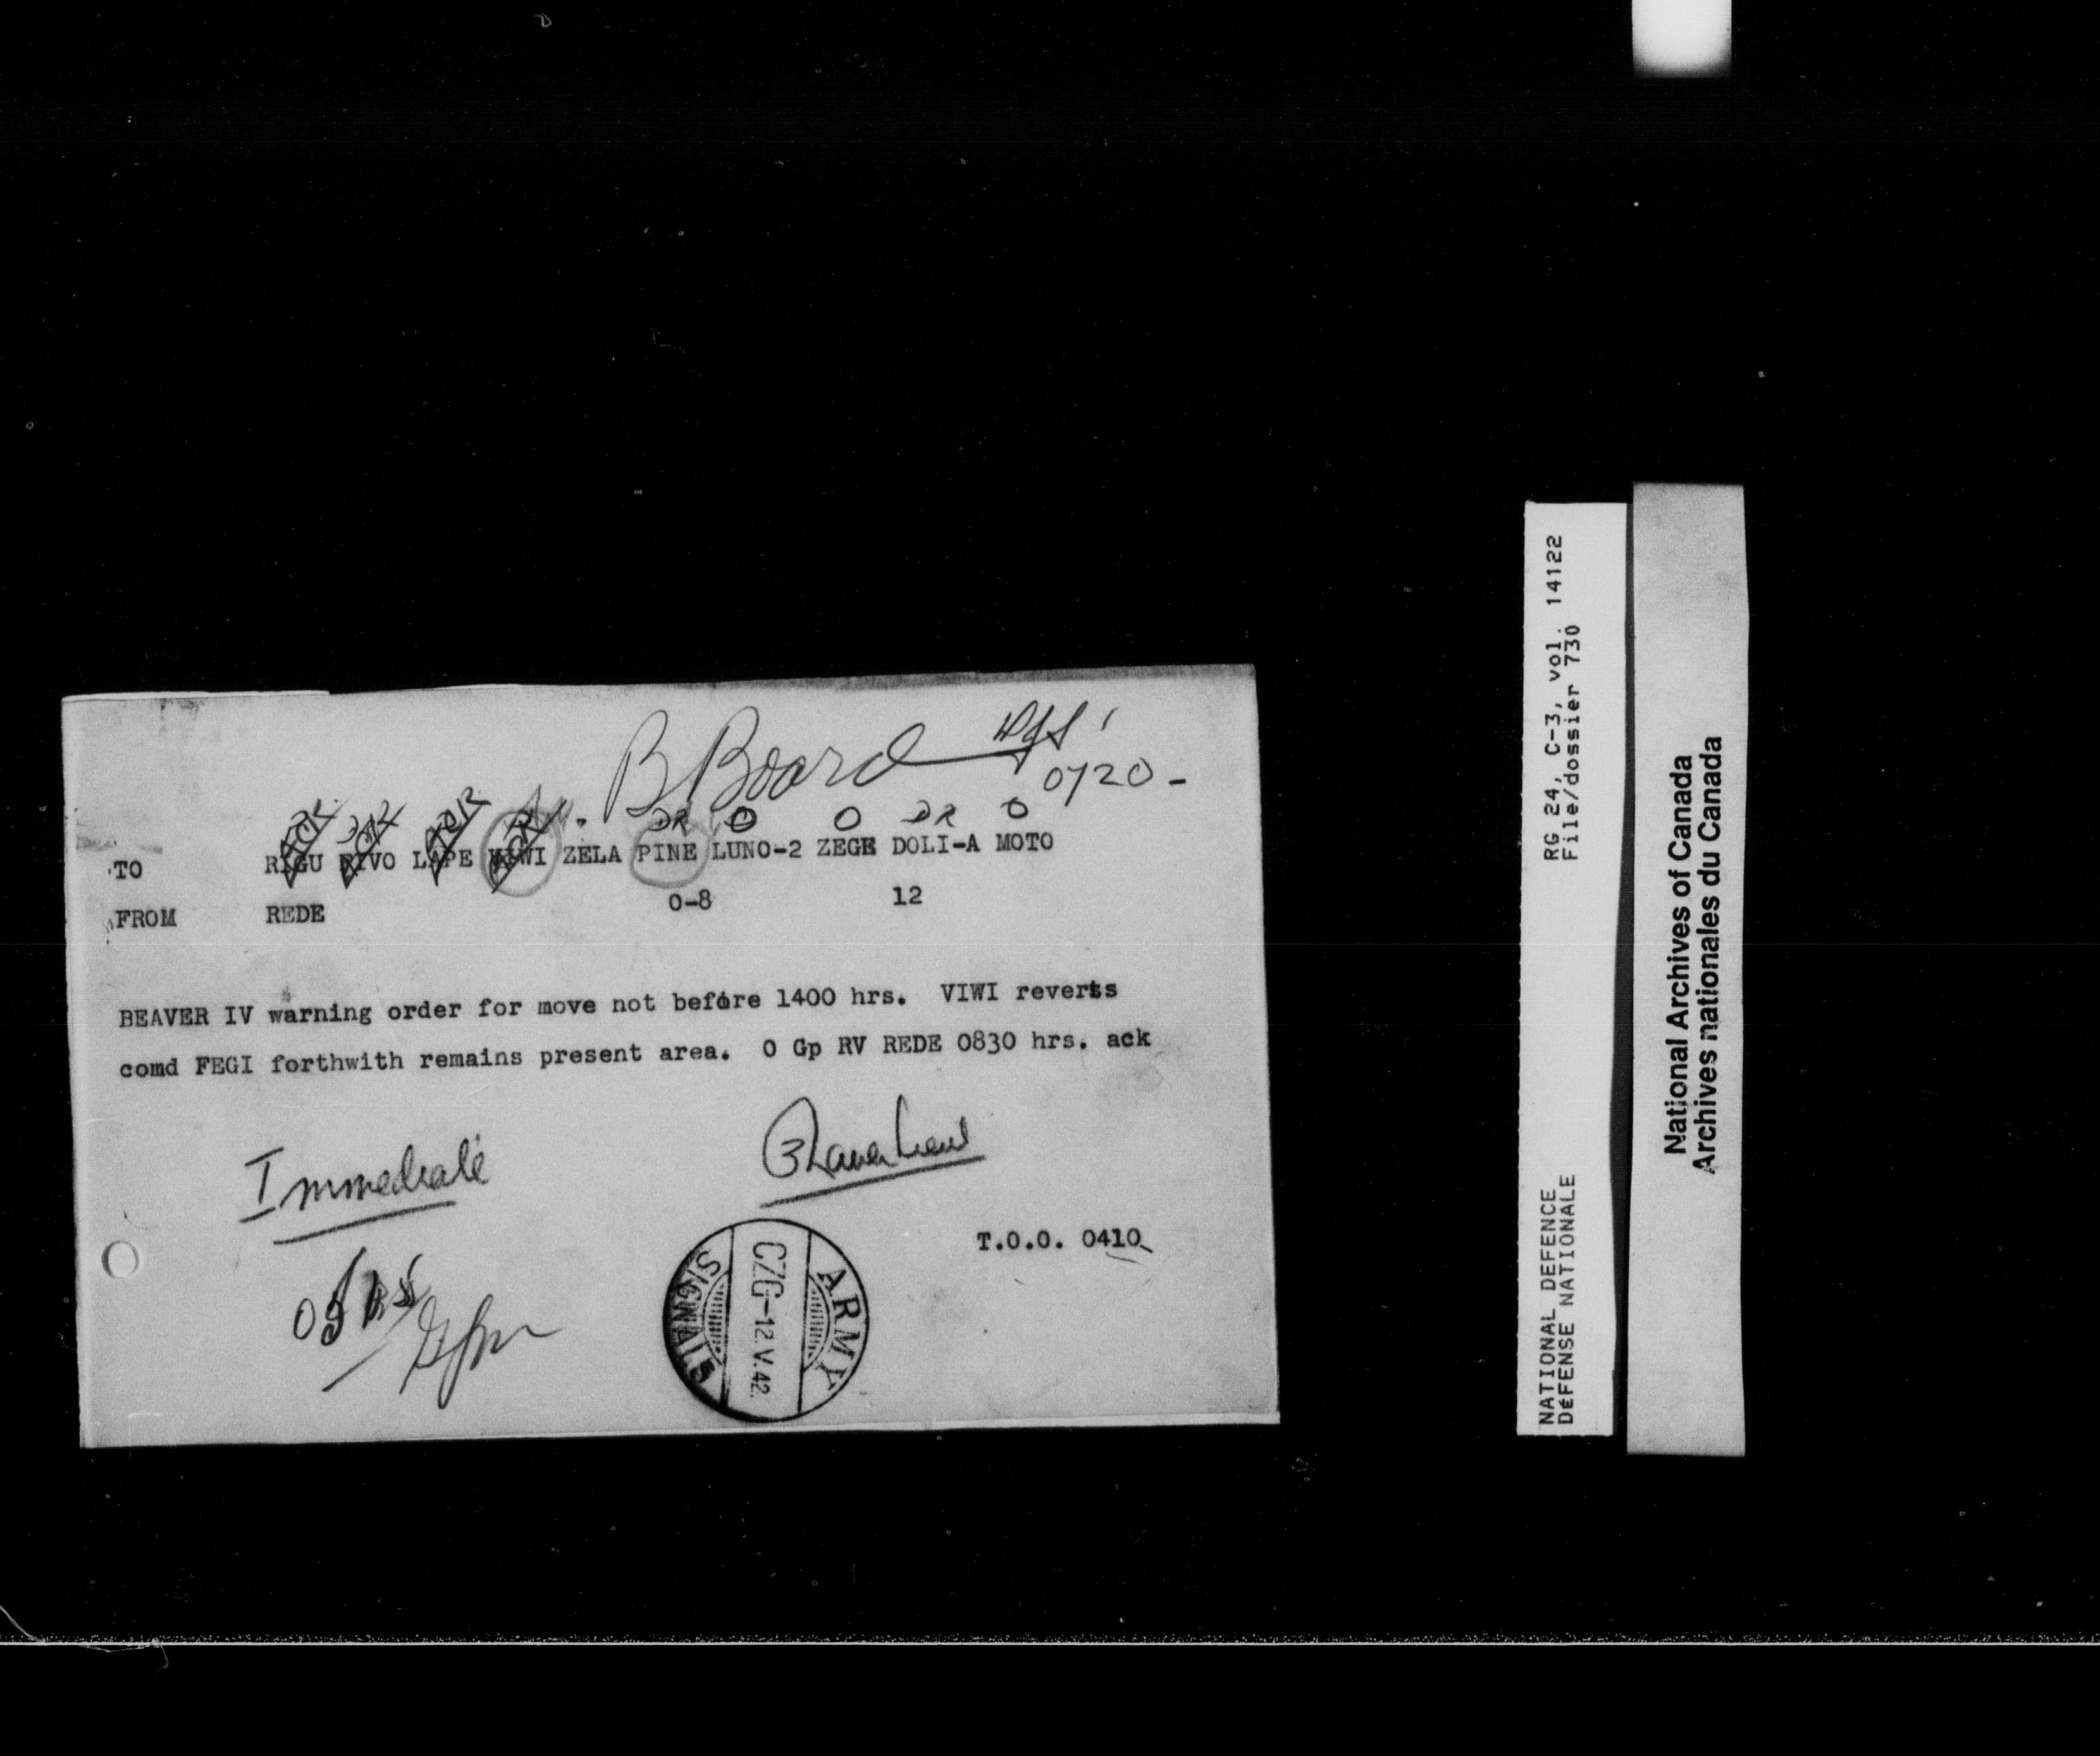 B Board
0720-
DR O O DR O
TO RIGU RIVO LAPE VIWI ZELA PINE LUNO-2 ZEGE DOLI-A MOTO
FROM REDE 0-8 12
BEAVER IV warning order for move not before 1400 hrs. VIWI reverts
comd FEGI forthwith remains present area. O Gp RV REDE 0830 hrs. ack
Immediate
T.O.O. 0410
ARMY
CZG-12.V.42.
SIGNALS
RG 24, C-3, vol. 14122
File/dossier 730
NATIONAL DEFENCE
DÉFENSE NATIONALE
National Archives of Canada
Archives nationales du Canada